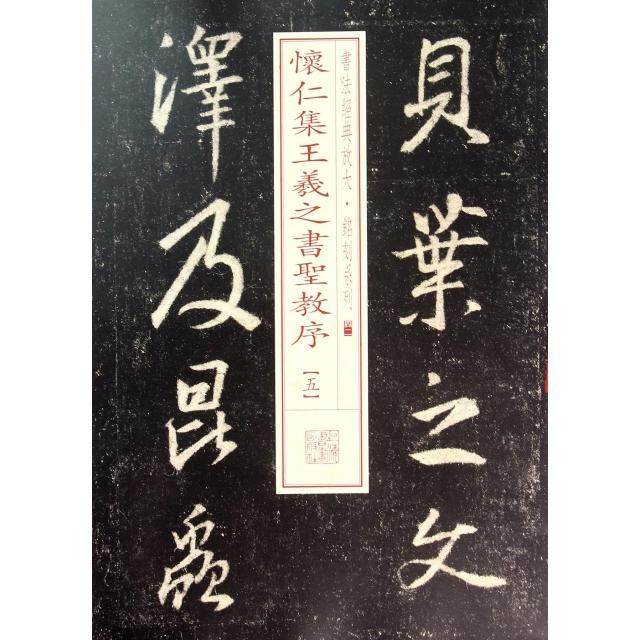 貝葉之文
書法經典放大·銘刻系列
懷仁集王羲之書聖教序
【五】
澤及昆蟲